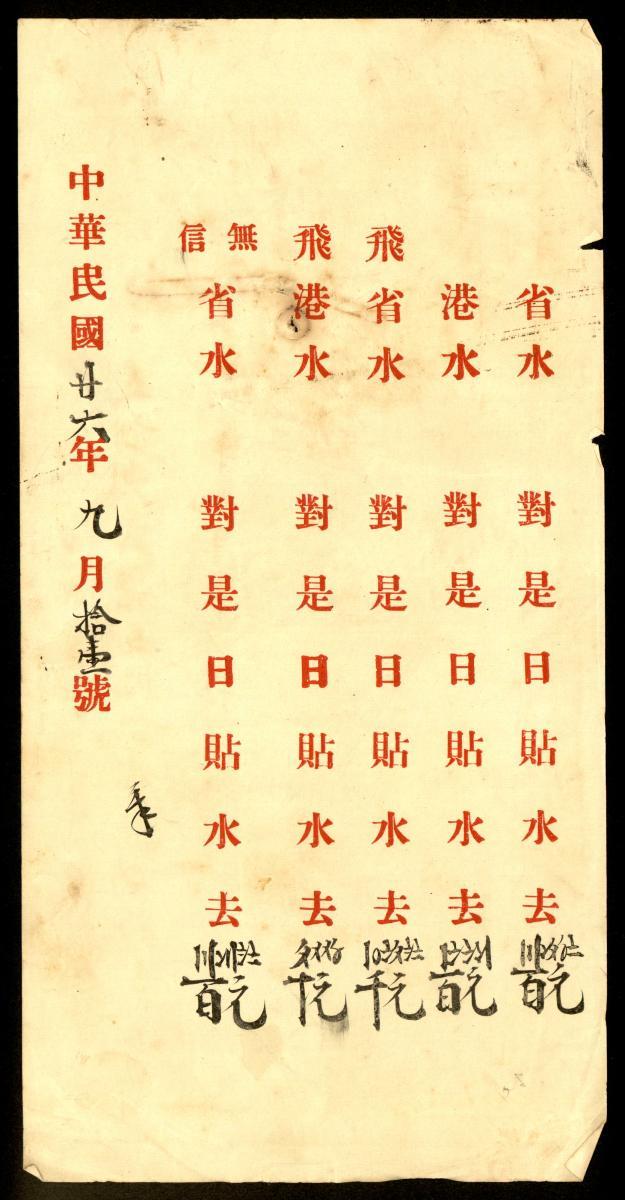 省水 對是日貼水去 百元
港水 對是日貼水去 百元
飛省水 對是日貼水去 千元
飛港水 對是日貼水去 十元
無信省水 對是日貼水去 百元
中華民國廿六年九月拾壹號